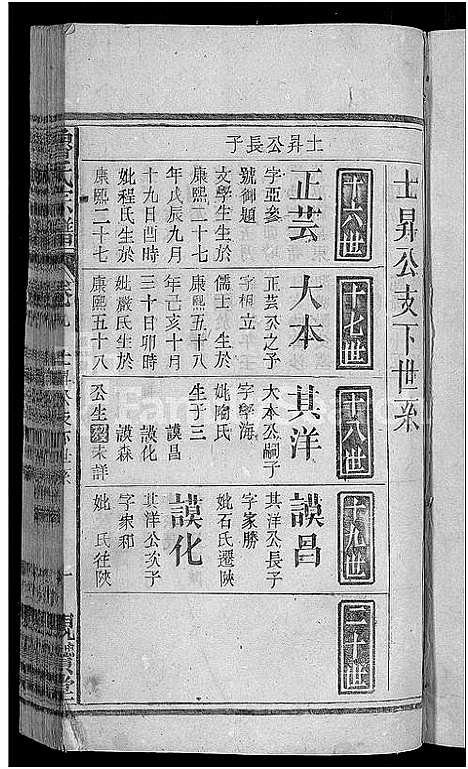 士昇公支下世系
十六世
十七世
十八世
十九世
二十世
士昇公長子
正芸
字亞參
號御題
文學生生於
康熙二十七
年戊辰九月
十九日酉時
妣程氏生於
康熙二十七
大本
正芸公之子
字根立
儒士 生於
康熙五十八
年己亥十月
三十日卯時
妣嚴氏生於
康熙五十八
其洋
大本公嗣子
字學海
妣陶氏
生子三
謨昌
謨化
謨森
公生 未詳
謨昌
其洋公長子
字家勝
妣石氏遷陝
謨化
其洋公次子
字家和
妣 氏往陝
士昇公支下世系